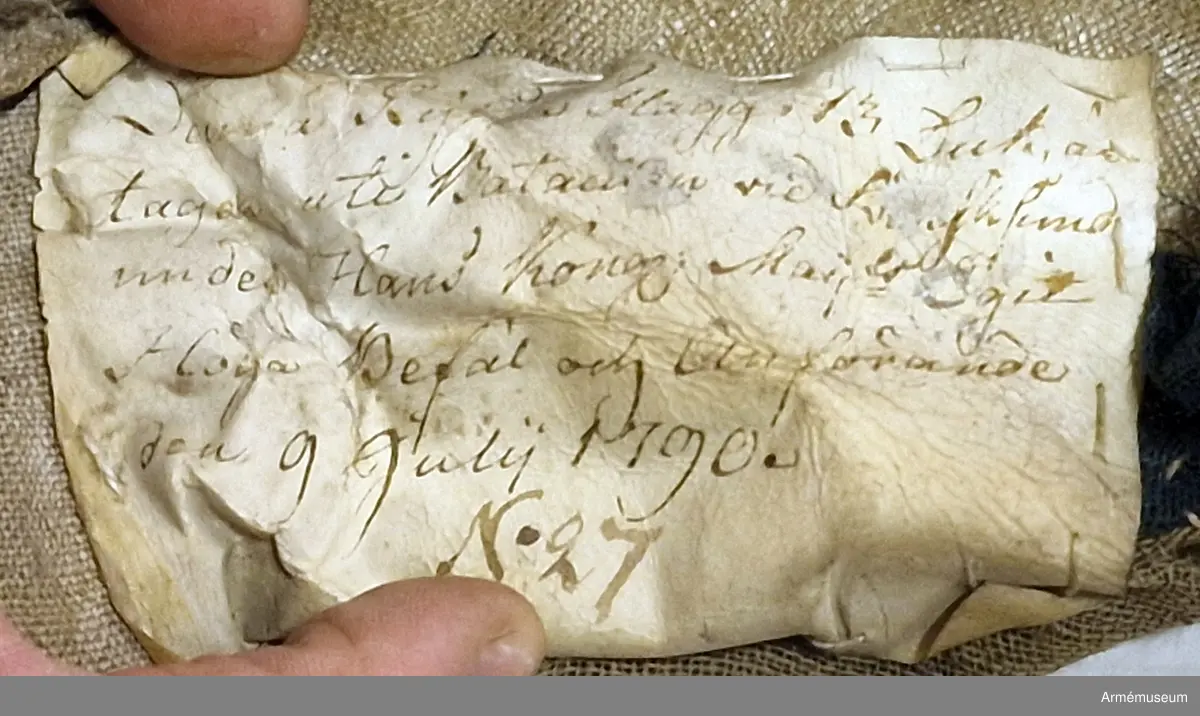 Denna Ryska Flagg, 13 Luk, är
tagen uti Batallien vid Svensksund
under Hans Kongl: Maij:ts Egit
Höga Befäl och Anförande
den 9 Julij 1790.
No 27
Armémuseum